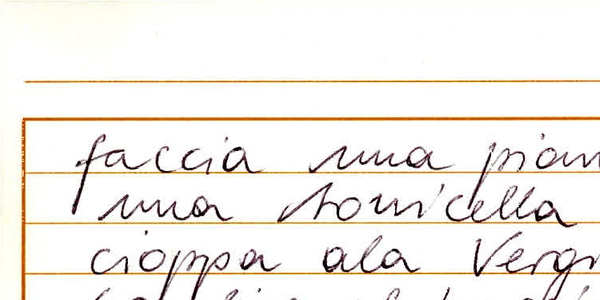 faccia una pian
una tonicella
cioppa ala Verg